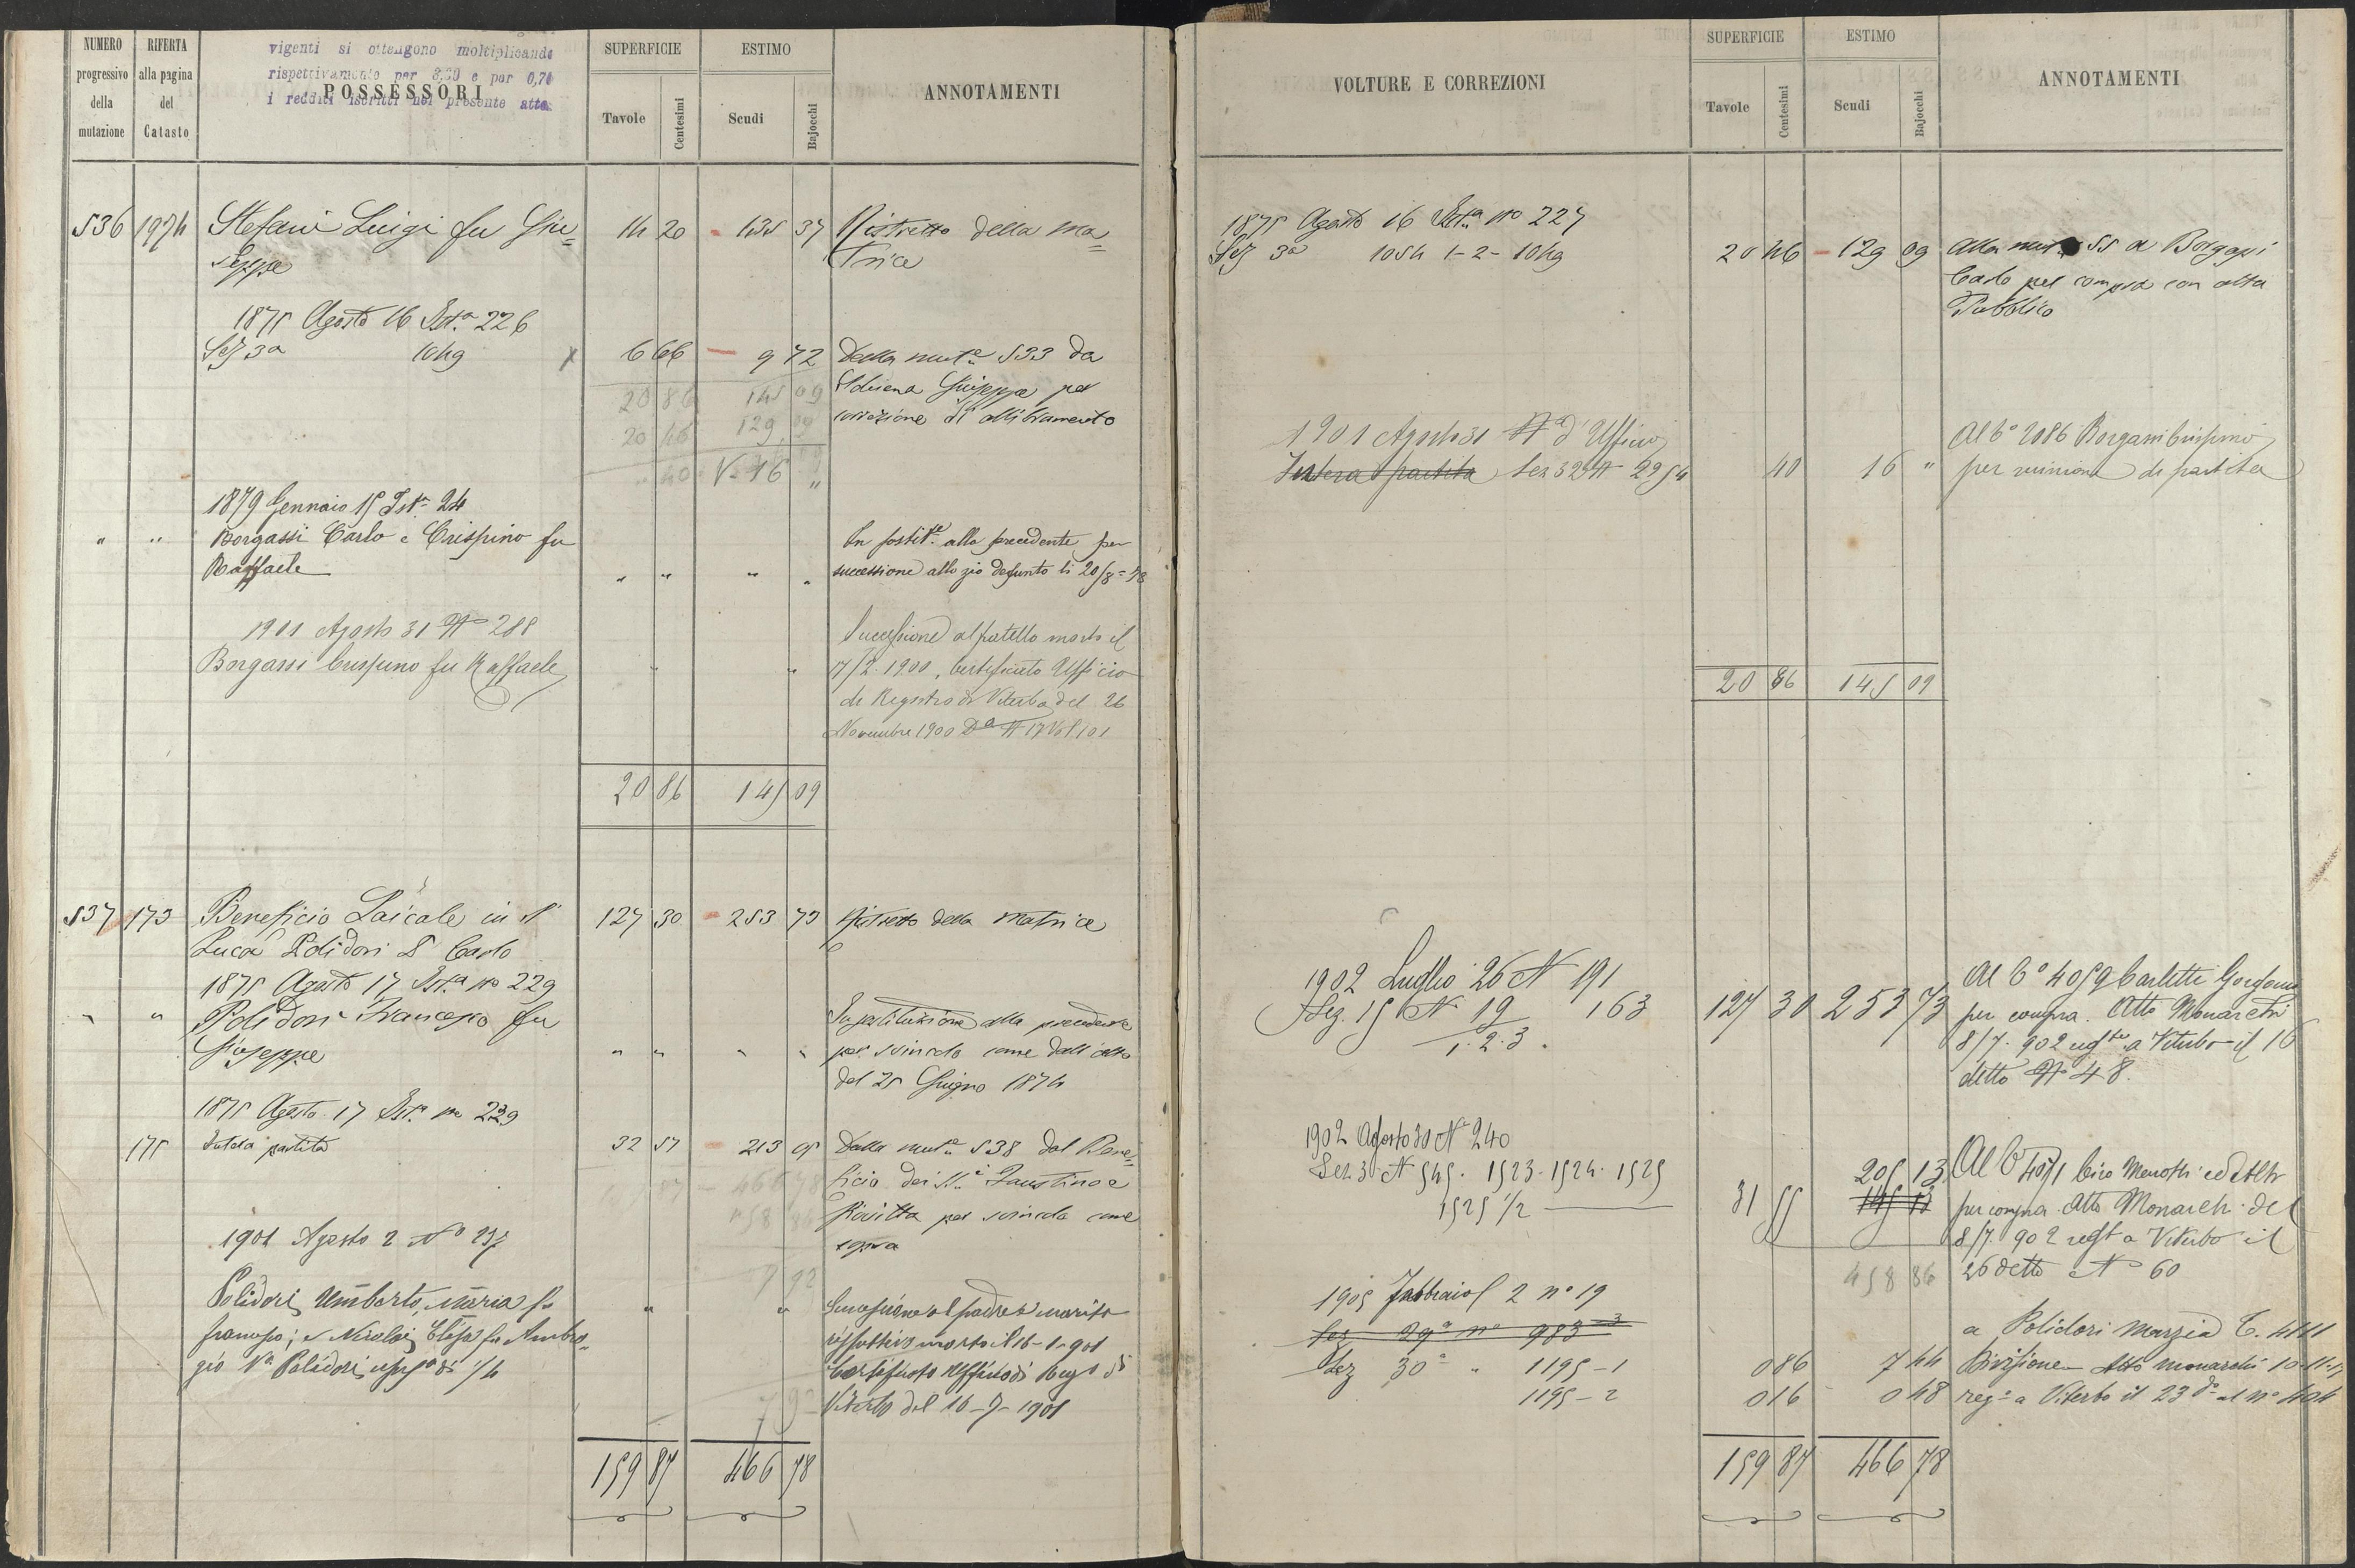 NUMERO progressivo della mutazione
RIFERTA alla pagina del Catasto
vigenti si ottengono moltiplicando
rispettivamente per 3,30 e par 0,70
i redditi iscritti nel presente atto
POSSESSORI
SUPERFICIE
Tavole Centesimi
ESTIMO
Scudi Bajocchi
ANNOTAMENTI
536 1974 Stefani Luigi fu Giu= 14 20 135 37 Ristretto della ma=
seppe trice
1875 Agosto 16 Ist.a 226
Sez 3a 1049 6 66 9 72 Dalla mut.e 533 da
20 86 145 09 Giuseppe per
20 46 129 09 correzione di allibramento
" 40 16 "
1879 Gennaio 15 Ist.a 24
" " Borgassi Carlo e Crispino fu In sostit.e alla precedente per
Raffaele " " " " successione allo zio defunto li 20/8=78
1901 Agosto 31 No 288 Successione al fratello morto il
Borgassi Crispino fu Raffaele " " 17/2. 1900, Certificato Ufficio
di Registro di Viterbo del 26
Novembre 1900 Da N 17 Vol 101
20 86 145 09
537 173 Beneficio Laicale in S. 127 30 253 73 Ristretto della Matrice
Luca Polidori D. Carlo
1875 Agosto 17 Ist.a no 229
" " Polidori Francesco fu In sostituzione alla precedente
Giuseppe " " " " per svincolo come dall'atto
del 25 Giugno 1874
1875 Agosto 17 Ist.a no 229
175 Intera partita 32 57 213 05 Dalla mut.e 538 dal Bene=
466 78 ficio dei SS.i Faustino e
458 86 Giovitta per svincolo come
sopra
1901 Agosto 2 No 237
7 92
Polidori Umberto, Maria fu " " Successione al padre e marito
Francesco; e Nicolai Elisa fu Ambro= rispettivo morto il 16-1-901
gio Va Polidori usufa di 1/4 Certificato Uffizio di Rego di
7 92 Viterbo del 16-7-1901
159 87 466 78
VOLTURE E CORREZIONI
SUPERFICIE
Tavole Centesimi
ESTIMO
Scudi Bajocchi
ANNOTAMENTI
1875 Agosto 16 Ist.a no 227
Sez 3a 1054 1-2- 1049 20 46 129 09 Alla mut. 55 a Borgassi
Carlo per compra con atto
Pubblico
1901 Agosto 31 Na d'Ufficio Al Co 2086 Borgassi Crispino
Intera partita Sez 32 N 2954 40 16 " per riunione di partita
20 86 145 09
1902 Luglio 26 N 191 Al Co 4059 Carletti
Sez. 15 N 19 163 127 30 253 73 per compra. Atto Monarchi
1.2.3. 8/7. 902 regto a Viterbo il 16
detto No 48.
1902 Agosto 30 No 240
Sez. 3 N 545. 1523. 1524. 1525 205 13 Al Co 4071 Ciro Menotti ed altri
1525 1/2 31 55 195 13 per compra. Atto Monarchi del
8/7. 902 regt a Viterbo il
458 86 26 detto No 60
1905 Febbraio 2 no 19
Sez 29a no 983-3 a Polidori Marzia C. 4141
Sez 30a " 1195-1 0 86 7 44 Divisione Atto Monarchi
1195-2 0 16 0 48 rego a Viterbo il 23 do al no 404
159 87 466 78